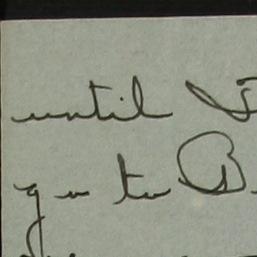 until I
go to B.